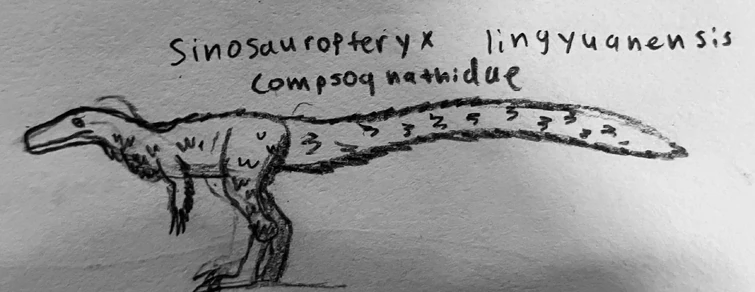 Sinosauropteryx lingyuanensis
Compsognathidae